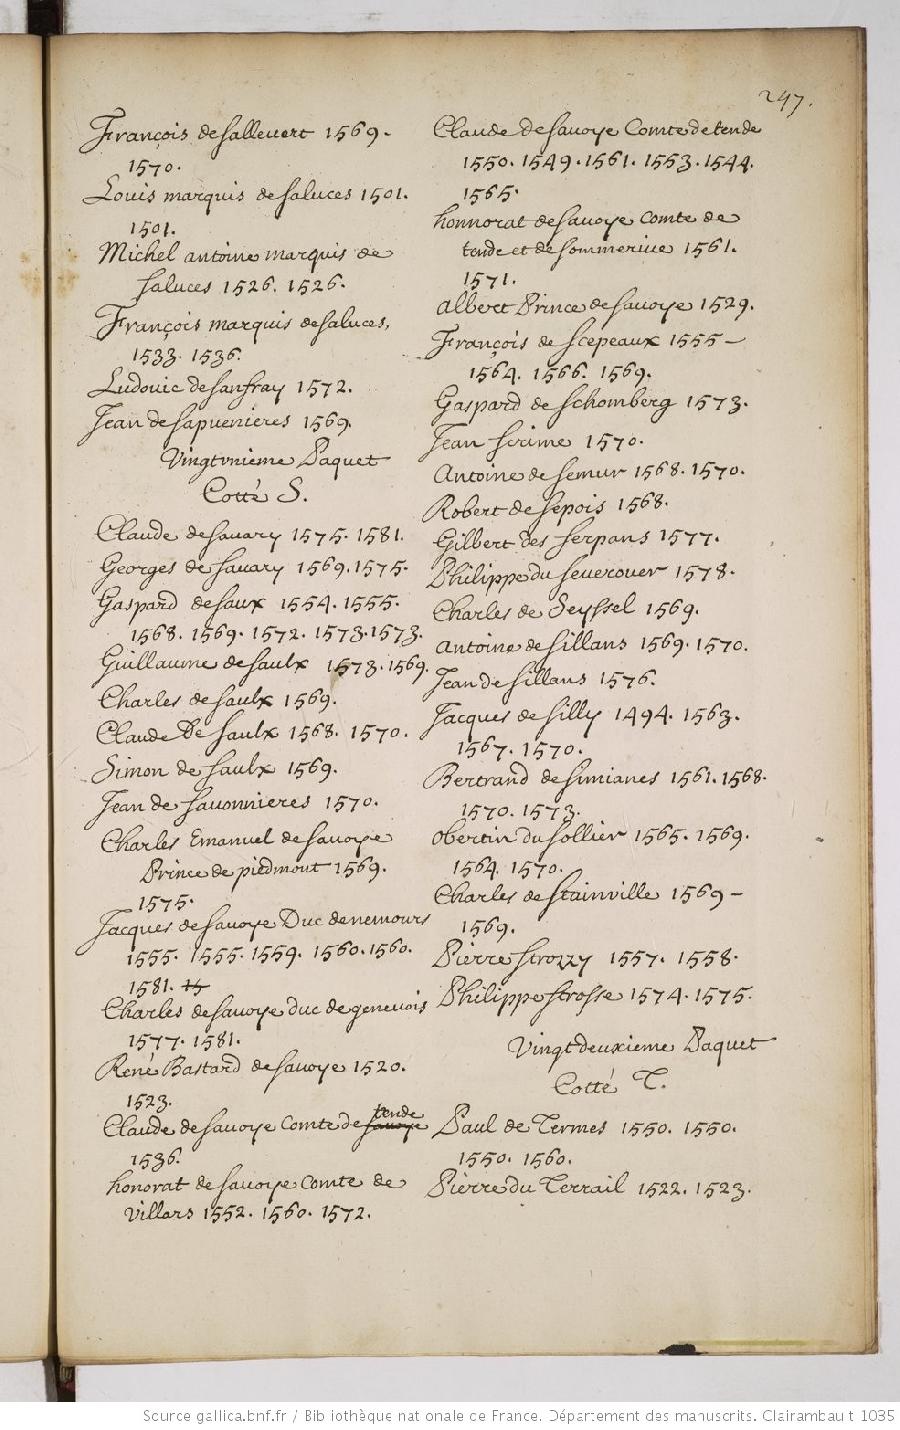 247.
François de sallevert 1569.
1570.
Louis marquis de saluces 1501.
1501.
Michel antoine marquis de
saluces 1526. 1526.
François marquis de saluces,
1533. 1536.
Ludovic de sanfray 1572.
Jean de sapvenieres 1569.
Vingtvnieme Paquet
Cotté S.
Claude de savary 1575. 1581.
Georges de savary 1569. 1575.
Gaspard de saux 1554. 1555.
1568. 1569. 1572. 1573. 1573.
Guillaume de saulx 1573. 1569.
Charles de saulx 1569.
Claude De saulx 1568. 1570.
Simon de saulx 1569.
Jean de savonnieres 1570.
Charles Emanuel de savoye
Prince de piedmont 1569.
1575.
Jacques de savoye Duc de nemours
1555. 1555. 1559. 1560. 1560.
1581.
Charles de savoye duc de genevois
1577. 1581.
René Bastard de savoye 1520.
1523.
Claude de savoye Comte de savoye tende
1536.
honorat de savoye Comte de
villars 1552. 1560. 1572.
Claude de savoye Comte de tende
1550. 1549. 1561. 1553. 1544.
1565.
honnorat de savoye Comte de
tende et de sommerive 1561.
1571.
Albert Prince de savoye 1529.
François de scepeaux 1555-
1564. 1566. 1569.
Gaspard de schomberg 1573.
Jean scrime 1570.
Antoine de semur 1568. 1570.
Robert de sepois 1568.
Gilbert des serpans 1577.
Philippe du severouer 1578.
Charles de Seyssel 1569.
Antoine de sillans 1569. 1570.
Jean de sillans 1576.
Jacques de silly 1494. 1563.
1567. 1570.
Bertrand de simianes 1561. 1568.
1570. 1573.
obertin du sollier 1565. 1569.
1564. 1570.
Charles de stainville 1569-
1569.
Pierre strozzy 1557. 1558.
Philippe strosse 1574. 1575.
Vingtdeuxieme Paquet
Cotté T.
Paul de Termes 1550. 1550.
1550. 1560.
Pierre du Terrail 1522. 1523.
Source gallica.bnf.fr / Bibliothèque nationale de France. Département des manuscrits. Clairambault 1035